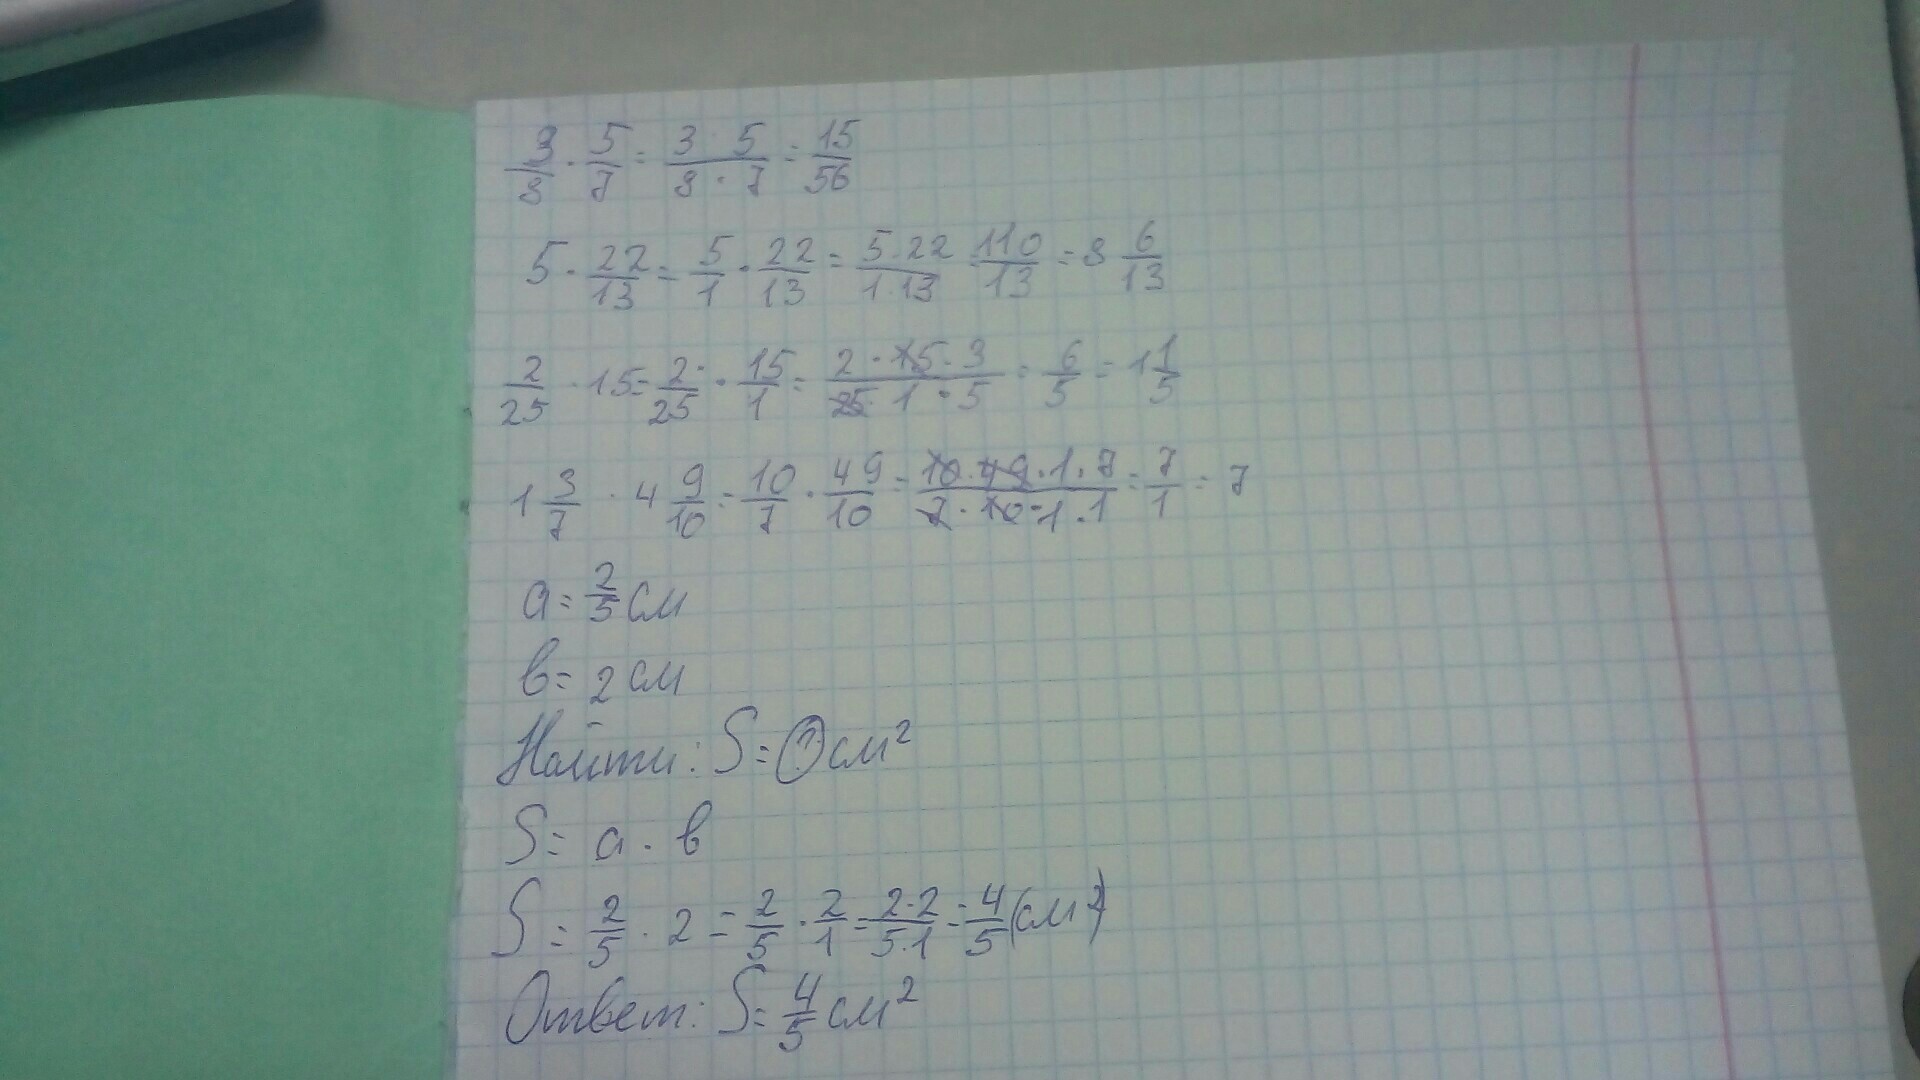 3/8 · 5/7 = 3 · 5 / 8 · 7 = 15/56
5 · 22/13 = 5/1 · 22/13 = 5 · 22 / 1 · 13 = 110/13 = 8 6/13
2/25 · 15 = 2/25 · 15/1 = 2 · 15 · 3 / 25 · 1 · 5 = 6/5 = 1 1/5
1 3/7 · 4 9/10 = 10/7 · 49/10 = 10 · 49 · 1 · 7 / 7 · 10 · 1 · 1 = 7/1 = 7
a = 2/5 см
в = 2 см
Найти: S = ? см²
S = a · в
S = 2/5 · 2 = 2/5 · 2/1 = 2·2 / 5·1 = 4/5 (см²)
Ответ: S = 4/5 см²